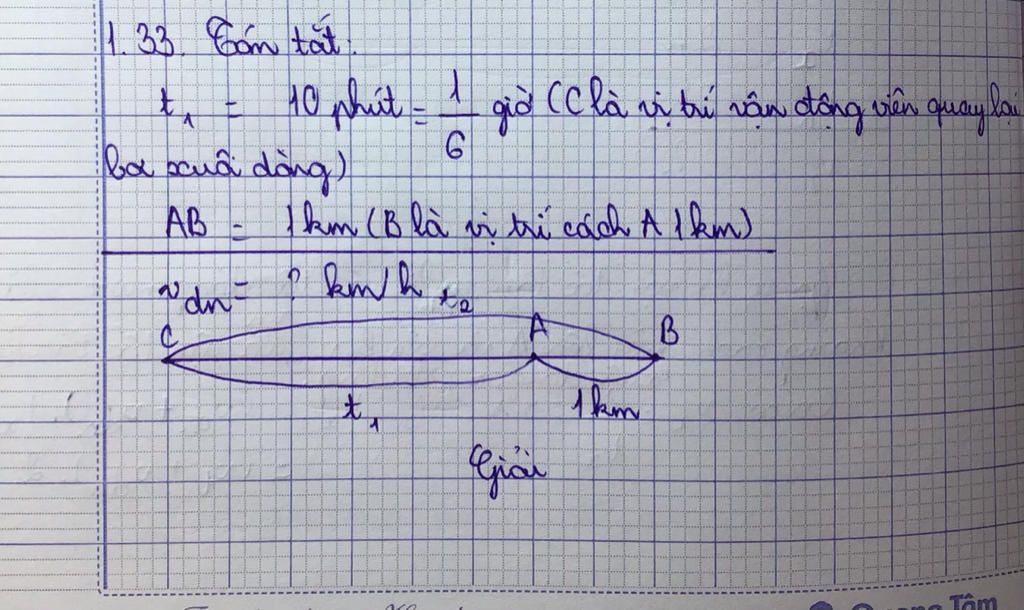 1.33. Tóm tắt:
t₁ = 10 phút = 1/6 giờ (C là vị trí vận động viên quay lại
bơi xuôi dòng)
AB = 1km (B là vị trí cách A 1km)
v dn = ? km/h
t₂
C A B
t₁ 1km
Giải
Tâm